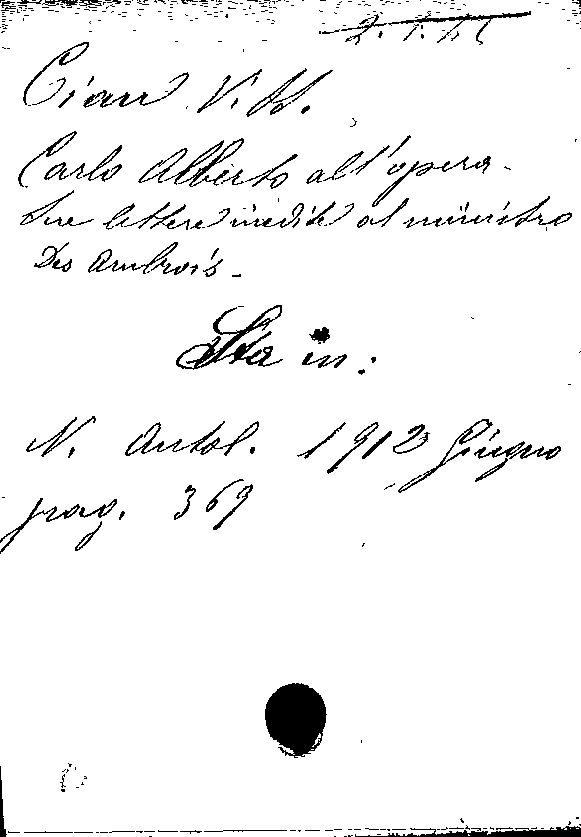 Cian Vitt.
Carlo Alberto all'opera -
sue lettere inedite al ministro
Des Ambrois -
Sta in:
N. Antol. 1912 Giugno
pag. 369